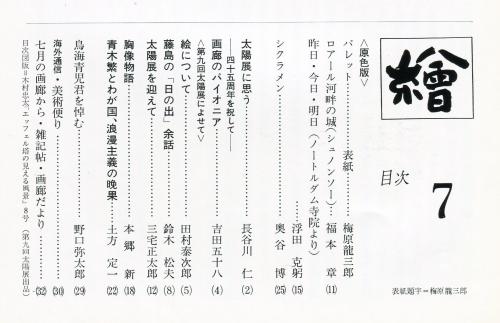 繪
目次
7
表紙題字=梅原龍三郎
〈原色版〉
パレット……………表紙……梅原龍三郎
ロアール河畔の城(シュノンソー)……福本章(11)
昨日・今日・明日(ノートルダム寺院より)
……浮田克躬(15)
シクラメン……奥谷博(25)
太陽展に思う……長谷川仁(2)
――四十五周年を祝して――
画廊のパイオニア……吉田五十八(4)
〈第九回太陽展によせて〉
絵について……田村泰次郎(5)
藤島の「日の出」余話……鈴木松夫(8)
太陽展を迎えて……三宅正太郎(12)
胸像物語……本郷新(18)
青木繁とわが国、浪漫主義の晩果……土方定一(22)
鳥海青児君を悼む……野口弥太郎(29)
海外通信・美術便り……(30)
七月の画廊から・雑記帖・画廊だより……(32)
目次図版=木村忠太「エッフェル塔の見える風景」8号(第九回太陽展出品)